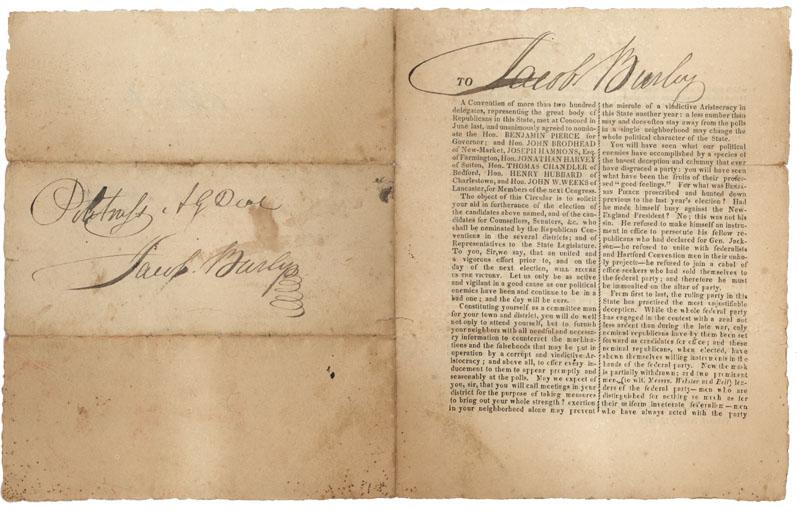 Jacob Burly
TO Jacob Burly
A Convention of more than two hundred
delegates, representing the great body of
Republicans in this State, met at Concord in
June last, and unanimously agreed to nomin-
ate the Hon. BENJAMIN PIERCE for
Governor; and Hon. JOHN BRODHEAD
of New-Market, JOSEPH HAMMONS, Esq.
of Farmington, Hon. JONATHAN HARVEY
of Sutton, Hon. THOMAS CHANDLER of
Bedford, Hon. HENRY HUBBARD of
Charlestown, and Hon. JOHN W. WEEKS of
Lancaster, for Members of the next Congress.
The object of this Circular is to solicit
your aid in furtherance of the election of
the candidates above named, and of the can-
didates for Counsellors, Senators, &c. who
shall be nominated by the Republican Con-
ventions in the several districts; and of
Representatives to the State Legislature.
To you, Sir, we say, that an united and
a vigorous effort prior to, and on the
day of the next election, WILL SECURE
US THE VICTORY. Let us only be as active
and vigilant in a good cause as our political
enemies have been and continue to be in a
bad one; and the day will be ours.
Constituting yourself as a committee man
for your town and district, you will do well
not only to attend yourself, but to furnish
your neighbors with all needful and necessa-
ry information to counteract the machina-
tions and the falsehoods that may be put in
operation by a corrupt and vindictive Ar-
istocracy; and above all, to offer every in-
ducement to them to appear promptly and
seasonably at the polls. May we expect of
you, sir, that you will call meetings in your
district for the purpose of taking measures
to bring out your whole strength? exertion
in your neighborhood alone may prevent
the misrule of a vindictive Aristocracy in
this State another year: a less number than
may and does often stay away from the polls
in a single neighborhood may change the
whole political character of the State.
You will have seen what our political
enemies have accomplished by a species of
the basest deception and calumny that ever
have disgraced a party: you will have seen
what have been the fruits of their profes-
sed "good feelings." For what was BENJA-
MIN PIERCE proscribed and hunted down
previous to the last year's election? Had
he made himself busy against the New-
England President? No; this was not his
sin. He refused to make himself an instru-
ment in office to persecute his fellow re-
publicans who had declared for Gen. Jack-
son—he refused to unite with federalists
and Hartford Convention men in their unho-
ly projects—he refused to join a cabal of
office seekers who had sold themselves to
the federal party; and therefore he must
be immolated on the altar of party.
From first to last, the ruling party in this
State has practised the most unjustifiable
deception. While the whole federal party
has engaged in the contest with a zeal not
less ardent than during the late war, only
nominal republicans have by them been set
forward as candidates for office; and these
nominal republicans, when elected, have
shown themselves willing instruments in the
hands of the federal party. Now the mask
is partially withdrawn; and two prominent
men, (to wit, Messrs. Webster and Bell) lea-
ders of the federal party—men who are
distinguished for nothing so much as for
their uniform inveterate federalism—men
who have always acted with the party